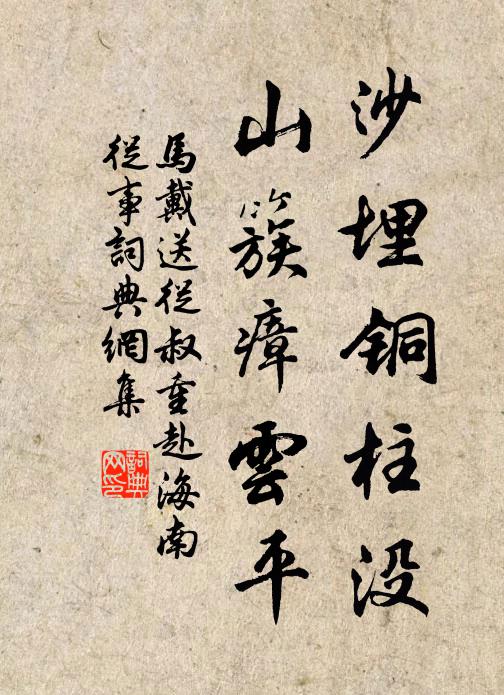 沙埋铜柱没
山簇瘴雲平
馬戴送從叔重赴海南
從事詞典網集
詞典
网印